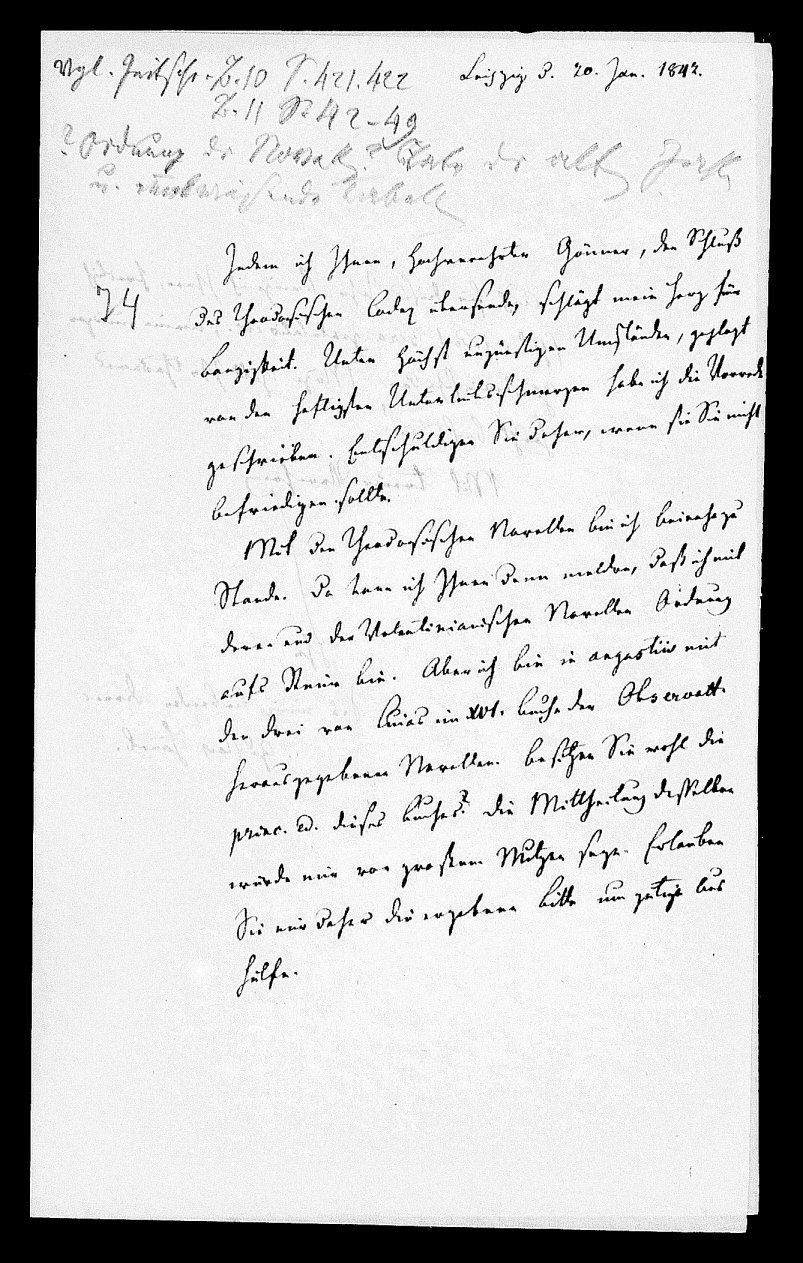 Vgl. Zeitschr. B. 10 S. 421. 422
Leipzig d. 20. Jan. 1842.
B. 11 S. 42-49
? Ordnung der Novell.? der alten
u.
74
Indem ich Ihnen, Hochverehrter Gönner, den Schluß
des Theodosischen Codex übersende, schlägt mein Herz für
Bangigkeit. Unter höchst ungünstigen Umständen, geplagt
von den heftigsten Unterleibsschmerzen habe ich die Vorrede
geschrieben. Entschuldigen Sie daher, wenn sie Sie nicht
befriedigen sollte.
Mit den Theodosischen Novellen bin ich beinahe zu
Stande. Da kann ich Ihnen denn melden, daß ich mit
deren und der Valentinianischen Novellen Ordnung
aufs Reine bin. Aber ich bin in angustiis mit
den drei von Cuias im XVI. Buche der Observatt.
herausgegebenen Novellen. Besitzen Sie wohl die
princ. ed. dieses Buches? Die Mittheilung desselben
würde mir von großem Nutzen seyn. Erlauben
Sie mir daher die ergebene Bitte um gütige Aus
hülfe.